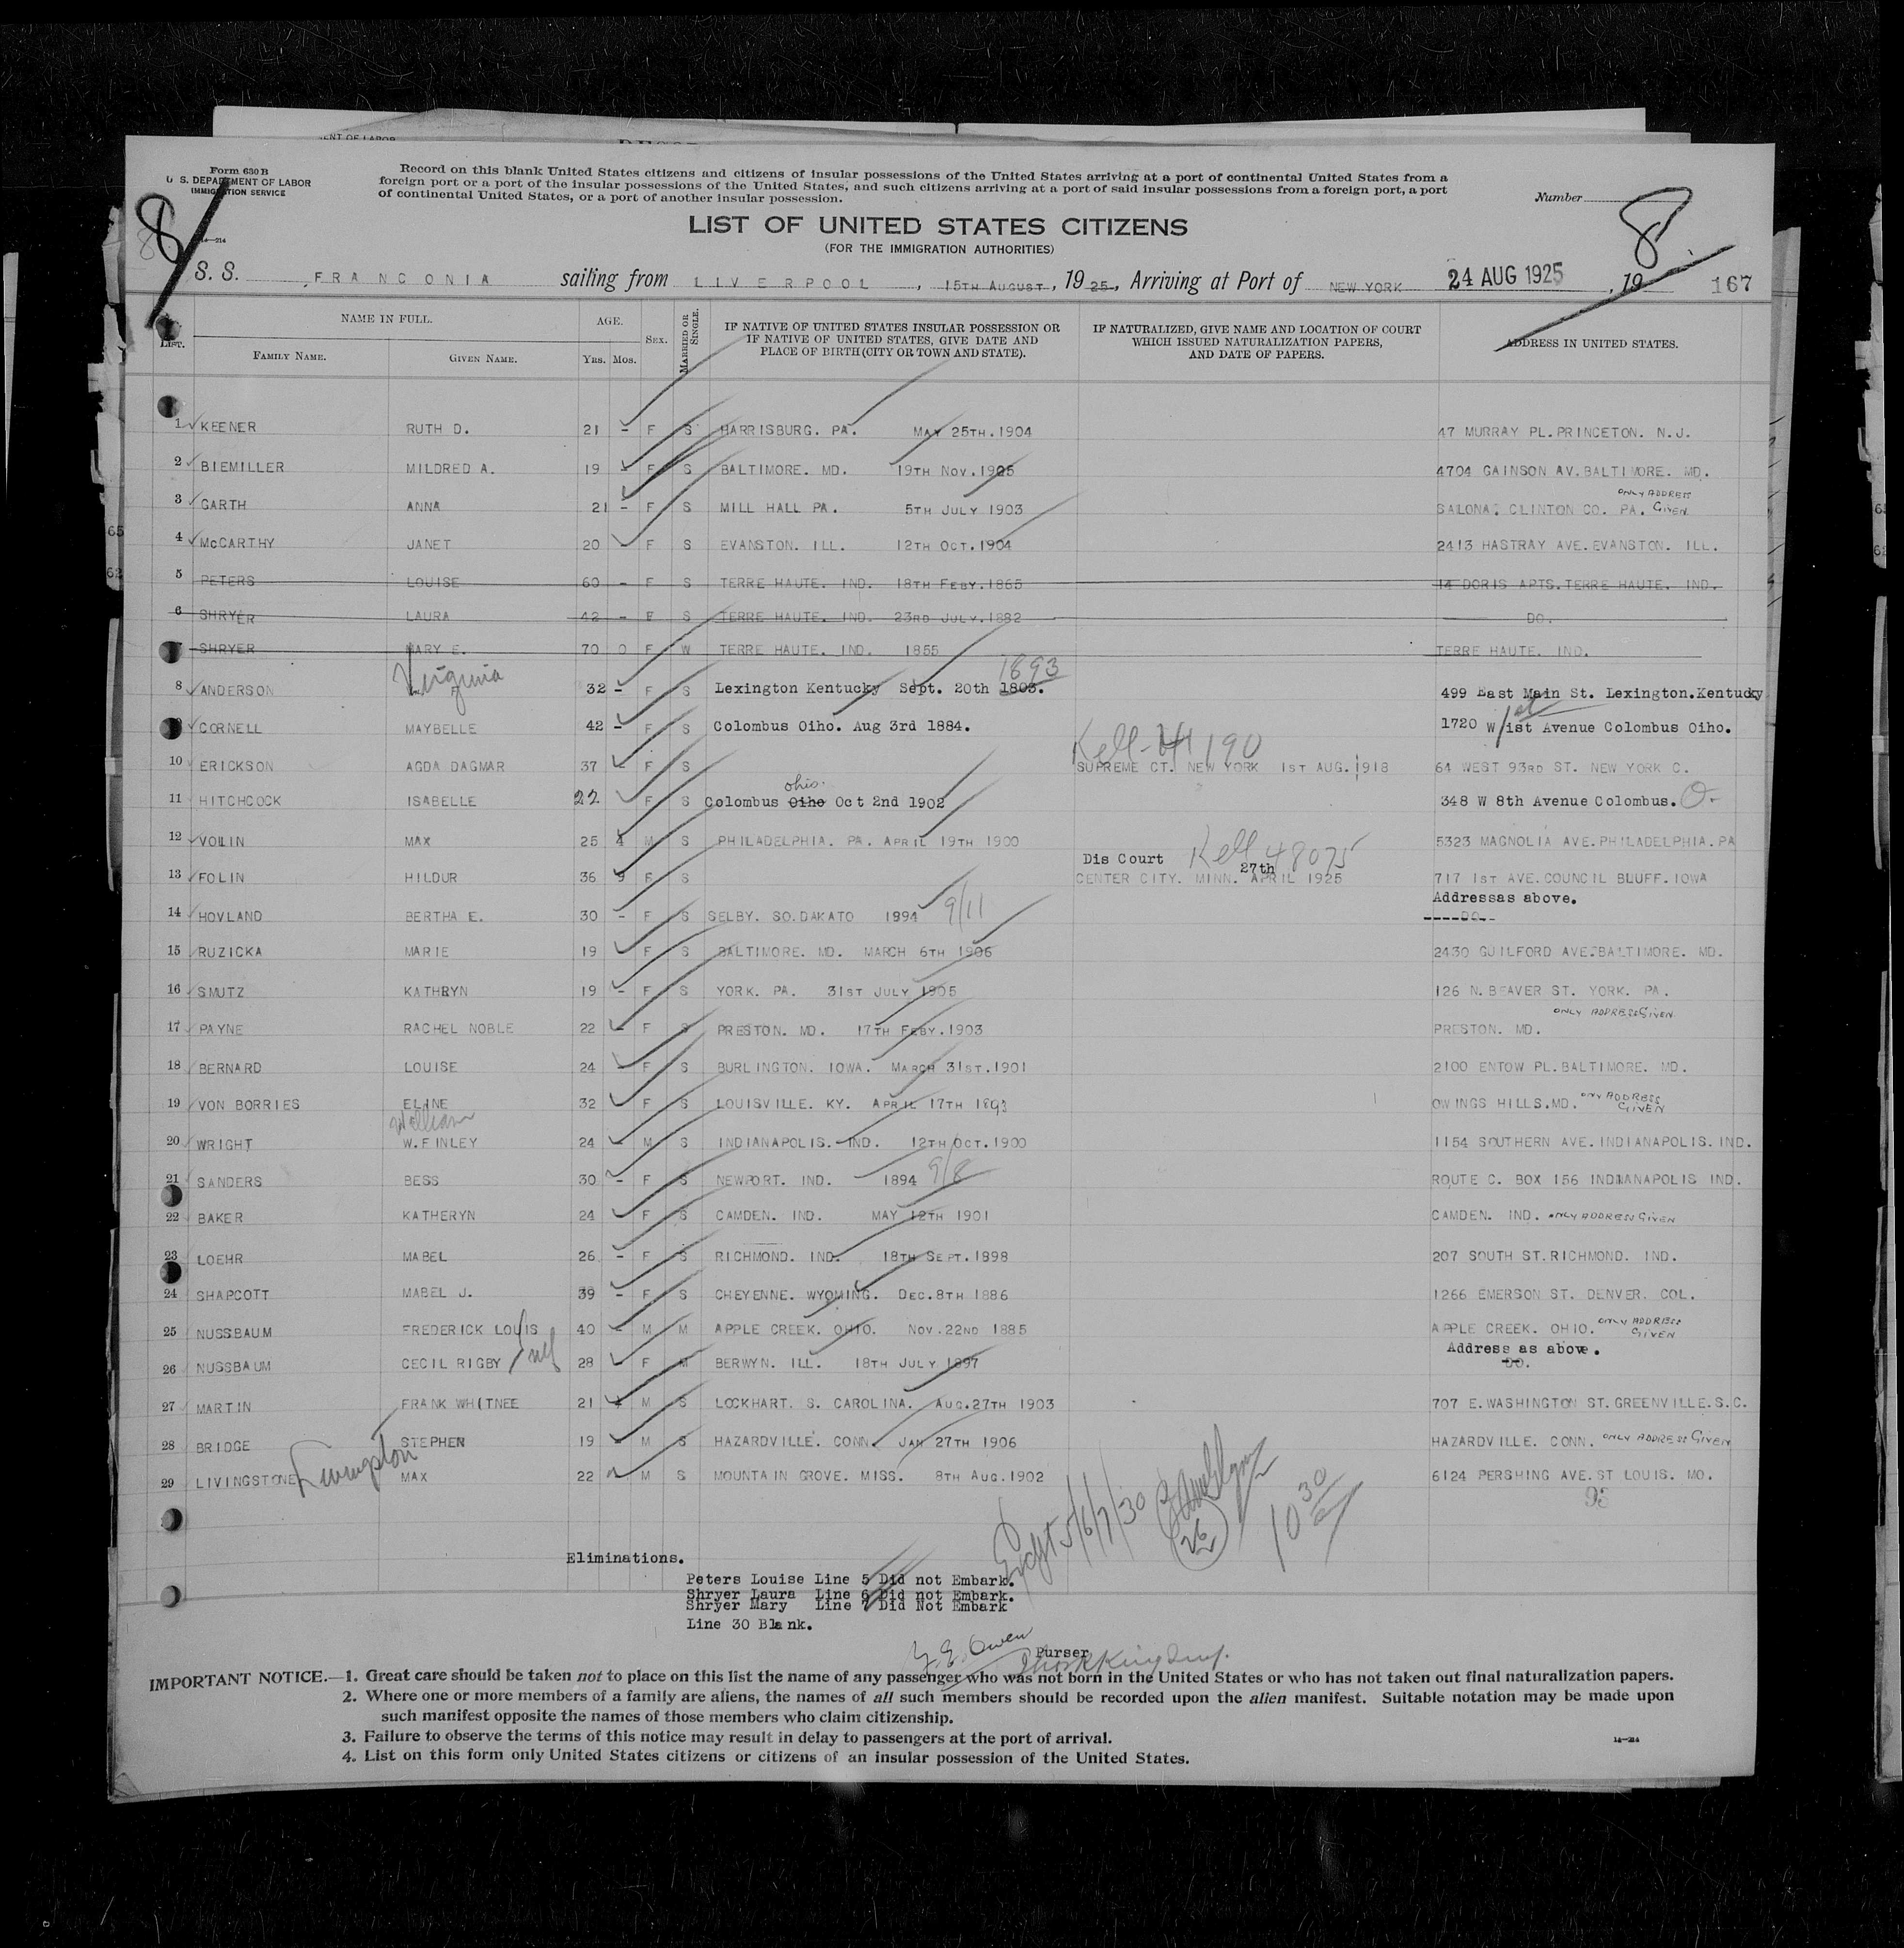 Form 630 B
U. S. DEPARTMENT OF LABOR
IMMIGRATION SERVICE
Record on this blank United States citizens and citizens of insular possessions of the United States arriving at a port of continental United States from a
foreign port or a port of the insular possessions of the United States, and such citizens arriving at a port of said insular possessions from a foreign port, a port
of continental United States, or a port of another insular possession.
Number
8
8
14—214
LIST OF UNITED STATES CITIZENS
(FOR THE IMMIGRATION AUTHORITIES)
S. S. FRANCONIA sailing from LIVERPOOL, 15TH AUGUST, 1925, Arriving at Port of NEW YORK 24 AUG 1925, 19 167
LIST. NAME IN FULL. AGE. SEX. MARRIED OR SINGLE. IF NATIVE OF UNITED STATES INSULAR POSSESSION OR IF NATIVE OF UNITED STATES, GIVE DATE AND PLACE OF BIRTH (CITY OR TOWN AND STATE). IF NATURALIZED, GIVE NAME AND LOCATION OF COURT WHICH ISSUED NATURALIZATION PAPERS, AND DATE OF PAPERS. ADDRESS IN UNITED STATES.
FAMILY NAME. GIVEN NAME. YRS. MOS.
1 KEENER RUTH D. 21 - F S HARRISBURG. PA. MAY 25TH.1904 47 MURRAY PL.PRINCETON. N.J.
2 BIEMILLER MILDRED A. 19 - F S BALTIMORE. MD. 19TH NOV.1905 4704 GAINSON AV.BALTIMORE. MD.
3 GARTH ANNA 21 - F S MILL HALL PA. 5TH JULY 1903 SALONA. CLINTON CO. PA. ONLY ADDRESS GIVEN
4 McCARTHY JANET 20 - F S EVANSTON. ILL. 12TH OCT.1904 2413 HASTRAY AVE.EVANSTON. ILL.
5 PETERS LOUISE 60 - F S TERRE HAUTE. IND. 18TH FEBY.1865 14 DORIS APTS.TERRE HAUTE. IND.
6 SHRYER LAURA 42 - F S TERRE HAUTE. IND. 23RD JULY.1882 DO.
7 SHRYER MARY E. 70 0 F W TERRE HAUTE. IND. 1855 TERRE HAUTE. IND.
8 ANDERSON Virginia 32 - F S Lexington Kentucky Sept. 20th 1803. 1893 499 East Main St. Lexington.Kentucky
9 CORNELL MAYBELLE 42 - F S Colombus Oiho. Aug 3rd 1884. 1720 W 1st Avenue Colombus Oiho.
10 ERICKSON AGDA DAGMAR 37 - F S SUPREME CT. NEW YORK 1ST AUG. 1918 64 WEST 93RD ST. NEW YORK C.
11 HITCHCOCK ISABELLE 22 F S Colombus Oiho ohio. Oct 2nd 1902 348 W 8th Avenue Colombus. O.
12 VOLIN MAX 25 4 M S PHILADELPHIA. PA. APRIL 19TH 1900 5323 MAGNOLIA AVE.PHILADELPHIA.PA
13 FOLIN HILDUR 36 9 F S Dis Court Kell 48075 CENTER CITY. MINN. 27th APRIL 1925 717 1ST AVE.COUNCIL BLUFF.IOWA
Addressas above.
14 HOVLAND BERTHA E. 30 - F S SELBY. SO.DAKATO 1894 9/11 ----DO--
15 RUZICKA MARIE 19 F S BALTIMORE. MD. MARCH 6TH 1906 2430 GUILFORD AVE.BALTIMORE. MD.
16 SMUTZ KATHRYN 19 - F S YORK. PA. 31ST JULY 1905 126 N.BEAVER ST. YORK. PA.
17 PAYNE RACHEL NOBLE 22 - F S PRESTON. MD. 17TH FEBY.1903 PRESTON. MD. ONLY ADDRESS GIVEN
18 BERNARD LOUISE 24 - F S BURLINGTON. IOWA. MARCH 31ST.1901 2100 ENTOW PL.BALTIMORE. MD.
19 VON BORRIES ELINE 32 F S LOUISVILLE. KY. APRIL 17TH 1893 OWINGS HILLS.MD. ONLY ADDRESS GIVEN
William
20 WRIGHT W.FINLEY 24 - M S INDIANAPOLIS. IND. 12TH OCT.1900 1154 SOUTHERN AVE.INDIANAPOLIS.IND.
21 SANDERS BESS 30 - F S NEWPORT. IND. 1894 9/8 ROUTE C. BOX 156 INDIANAPOLIS IND.
22 BAKER KATHERYN 24 F S CAMDEN. IND. MAY 12TH 1901 CAMDEN. IND. ONLY ADDRESS GIVEN
23 LOEHR MABEL 26 - F S RICHMOND. IND. 18TH SEPT.1898 207 SOUTH ST.RICHMOND. IND.
24 SHAPCOTT MABEL J. 39 - F S CHEYENNE. WYOMING. DEC.8TH 1886 1266 EMERSON ST. DENVER. COL.
25 NUSSBAUM FREDERICK LOUIS 40 - M M APPLE CREEK. OHIO. NOV.22ND 1885 APPLE CREEK. OHIO. ONLY ADDRESS GIVEN
Address as above.
26 NUSSBAUM CECIL RIGBY 28 F M BERWYN. ILL. 18TH JULY 1897 DO.
27 MARTIN FRANK WHITNEE 21 M S LOCKHART. S. CAROLINA. AUG.27TH 1903 707 E.WASHINGTON ST.GREENVILLE.S.C.
28 BRIDGE STEPHEN 19 - M S HAZARDVILLE. CONN. JAN 27TH 1906 HAZARDVILLE. CONN. ONLY ADDRESS GIVEN
29 LIVINGSTONE Livingston MAX 22 M S MOUNTAIN GROVE. MISS. 8TH AUG.1902 6124 PERSHING AVE.ST LOUIS. MO.
26 10 30
Eliminations.
Peters Louise Line 5 Did not Embark.
Shryer Laura Line 6 Did not Embark.
Shryer Mary Line 7 Did Not Embark
Line 30 Blank.
Owen
Purser
IMPORTANT NOTICE.—1. Great care should be taken not to place on this list the name of any passenger who was not born in the United States or who has not taken out final naturalization papers.
2. Where one or more members of a family are aliens, the names of all such members should be recorded upon the alien manifest. Suitable notation may be made upon
such manifest opposite the names of those members who claim citizenship.
3. Failure to observe the terms of this notice may result in delay to passengers at the port of arrival.
4. List on this form only United States citizens or citizens of an insular possession of the United States.
14—214